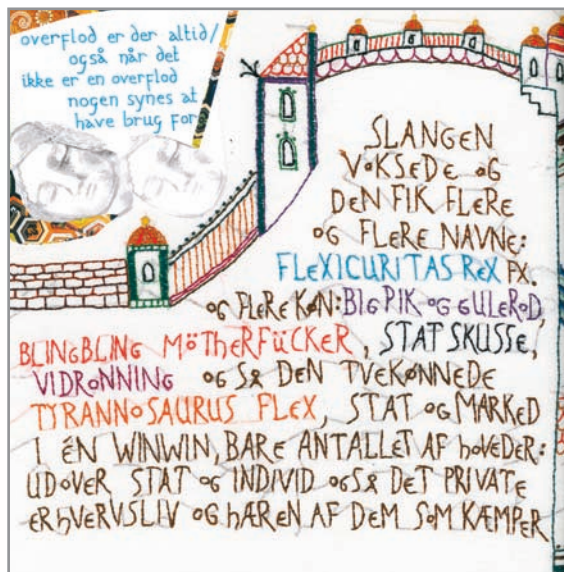 overflod er der altid/
også når det
ikke er en overflod
nogen synes at
have brug for
SLANGEN
VOKSEDE OG
DEN FIK FLERE
OG FLERE NAVNE:
FLEXICURITAS REX FX.
OG FLERE KØN: BIG PIK OG GULEROD,
BLINGBLING MÖTHERFÜCKER, STATSKUSSE,
VIDRONNING OG SÅ DEN TVEKØNNEDE
TYRANNOSAURUS FLEX, STAT OG MARKED
I ÉN WINWIN, BARE ANTALLET AF HOVEDER:
UDOVER STAT OG INDIVID OGSÅ DET PRIVATE
ERHVERVSLIV OG HÆREN AF DEM SOM KÆMPER